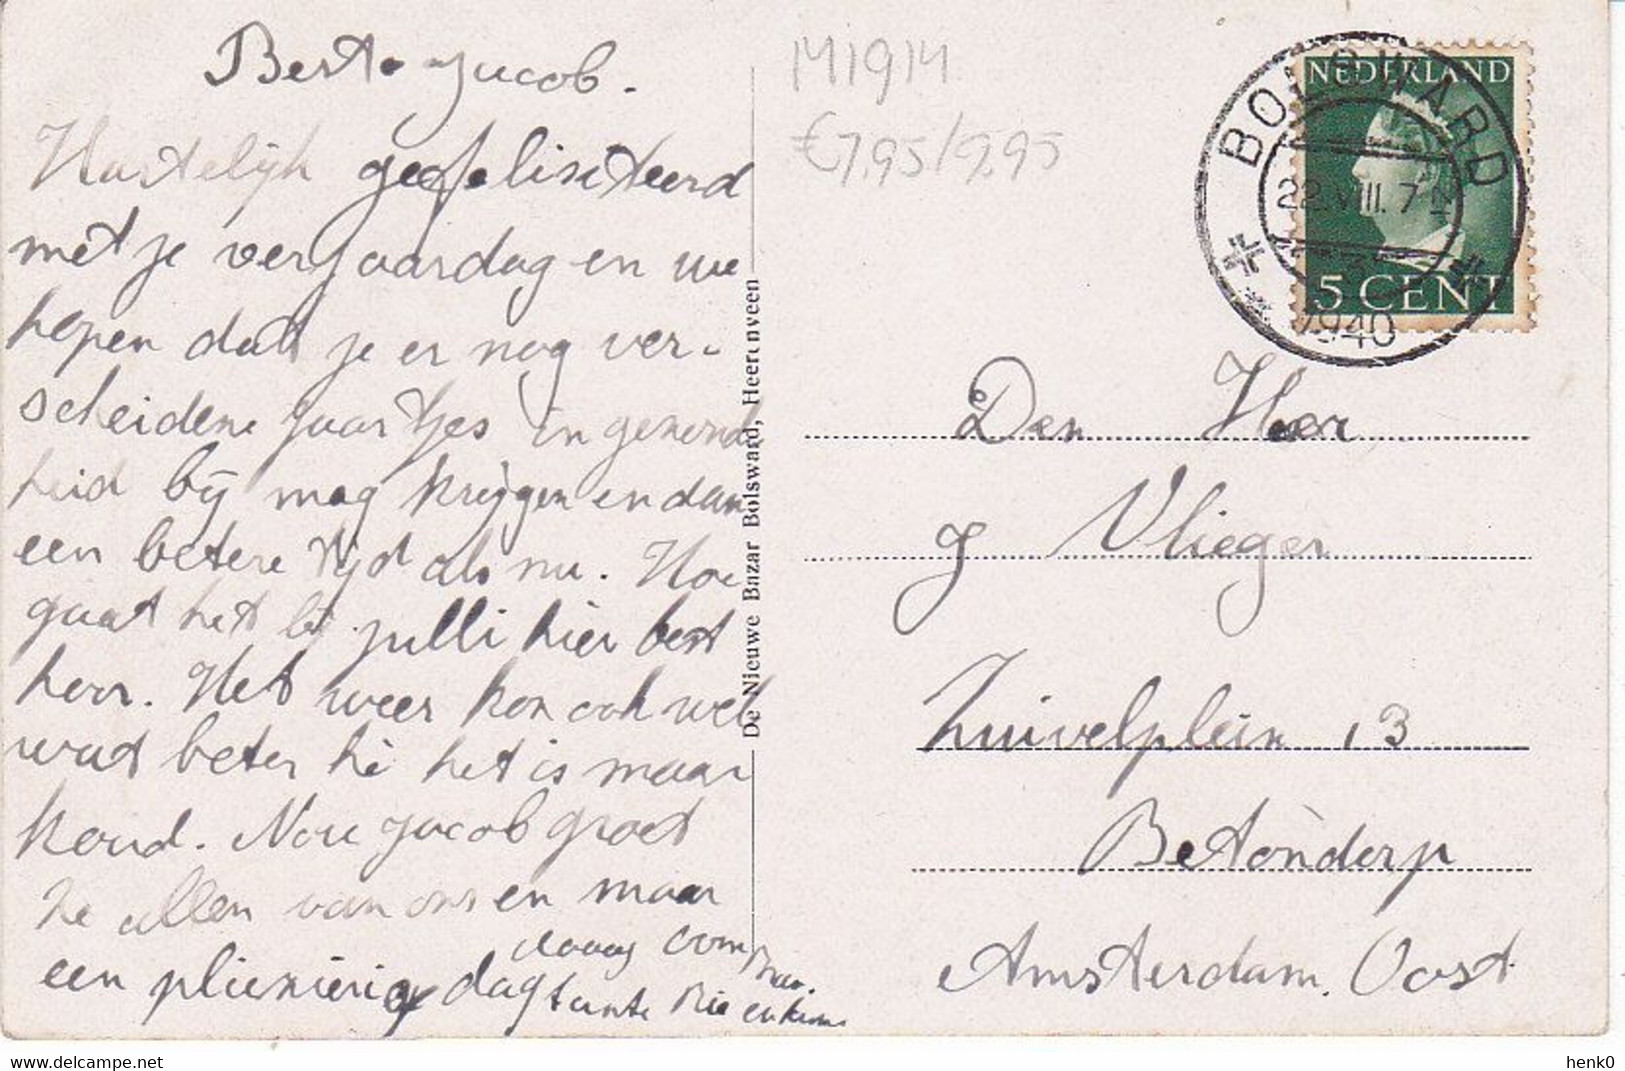 Beste Jacob.
Hartelijk gefeliciteerd
met je verjaardag en we
hopen dat je er nog ver-
scheidene jaartjes in gezond
heid bij mag krijgen en dan
een betere tijd als nu. Hoe
gaat het bij jullie hier best
hoor. Het weer kon ook wel
wat beter hè het is maar
koud. Nou Jacob groet
ze allen van ons en maar
een plezierig dag
daaag oom
tante Rie en kims
De Nieuwe Bazar Bolsward, Heerenveen
M1914
€7,95/9,95
BOLSWARD
22.VIII.7-N
1940
NEDERLAND
5 CENT
Den Heer
J Vlieger
Zuivelplein 13
Betondorp
Amsterdam. Oost.
https://www.delcampe.net
henk0